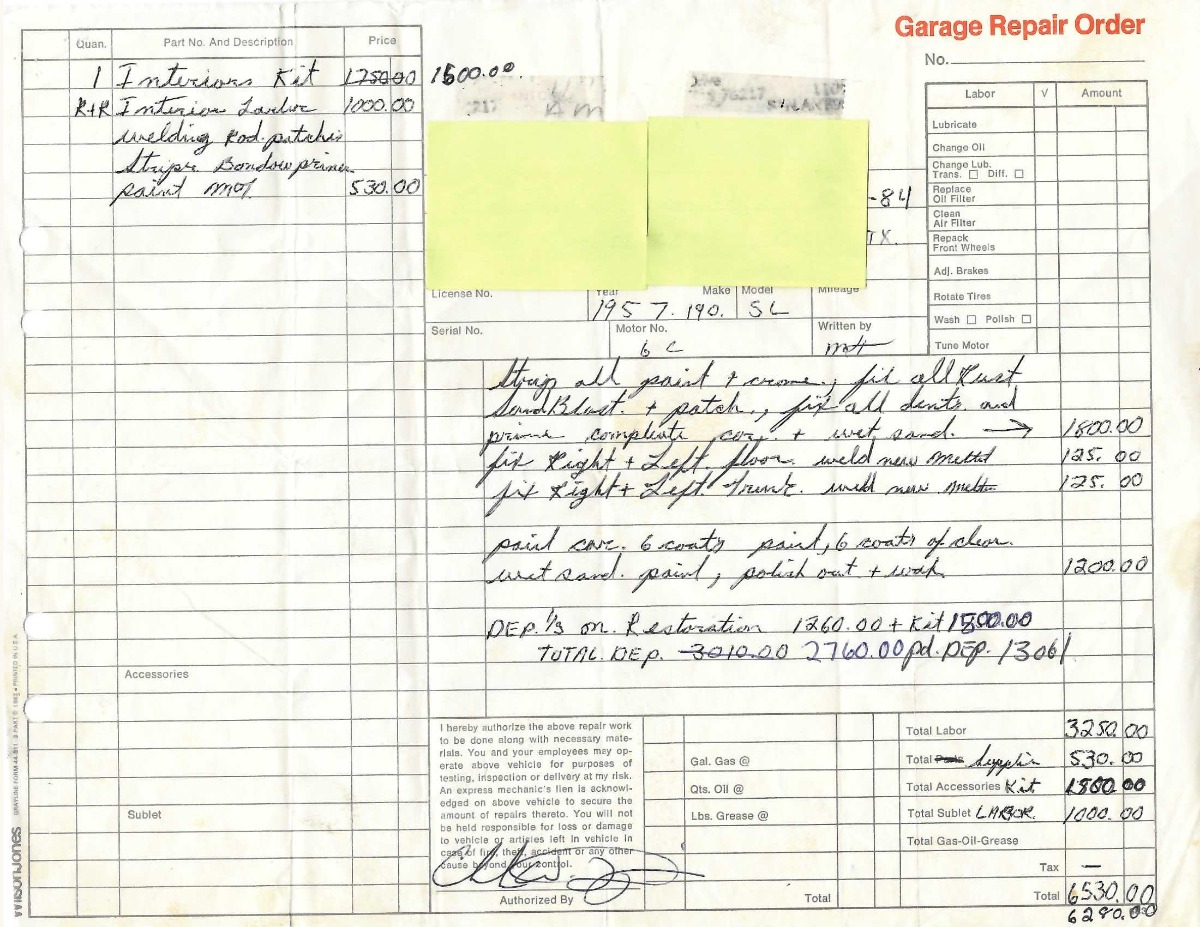 Garage Repair Order
No.
Quan. Part No. And Description Price
1 Interiors Kit 1250.00 1500.00.
R+R Interior Larboe 1000.00
welding Rod. patchis
Strips. Bondow primer
paint mat. 530.00
217
76217 110
-84
TX.
License No. Year Make Model Mileage
1957. 190. SL
Serial No. Motor No. Written by
6 C
Labor √ Amount
Lubricate
Change Oil
Change Lub.
Trans. ☐ Diff. ☐
Replace
Oil Filter
Clean
Air Filter
Repack
Front Wheels
Adj. Brakes
Rotate Tires
Wash ☐ Polish ☐
Tune Motor
Strip all paint + crome., fix all Rust
Sand Blast. + patch., fix all dents. and
prime compleate car. + wet sand. → 1800.00
fix Right + Left. floor. weld new mettel 125.00
fix Right + Left. Trunk. weld new mettel 125.00
paint car. 6 coats paint, 6 coats of clear.
wet sand. paint, polish out + wax. 1200.00
DEP. 1/3 on. Restoration 1260.00 + Kit 1500.00
TOTAL. DEP. 3010.00 2760.00 pd. DEP. 1306
Accessories
Sublet
I hereby authorize the above repair work
to be done along with necessary mate-
rials. You and your employees may op-
erate above vehicle for purposes of
testing, inspection or delivery at my risk.
An express mechanic's lien is acknowl-
edged on above vehicle to secure the
amount of repairs thereto. You will not
be held responsible for loss or damage
to vehicle or articles left in vehicle in
case of fire, theft, accident or any other
cause beyond your control.
Authorized By
Gal. Gas @
Qts. Oil @
Lbs. Grease @
Total
Total Labor 3250.00
Total Parts Supplis 530.00
Total Accessories Kit 1500.00
Total Sublet LABOR. 1000.00
Total Gas-Oil-Grease
Tax —
Total 6530.00
6280.00
WilsonJones
GRAYLINE FORM 44-811 3 PART © 1983 • PRINTED IN U.S.A.